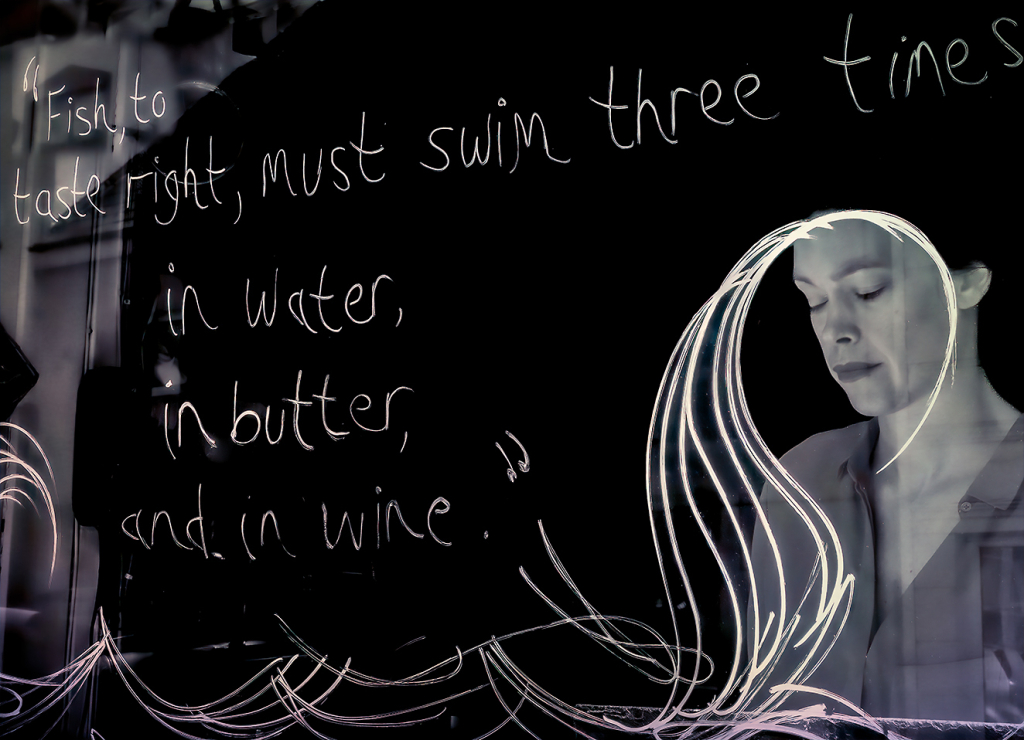 "Fish, to
taste right, must swim three times
in water,
in butter,
and in wine."